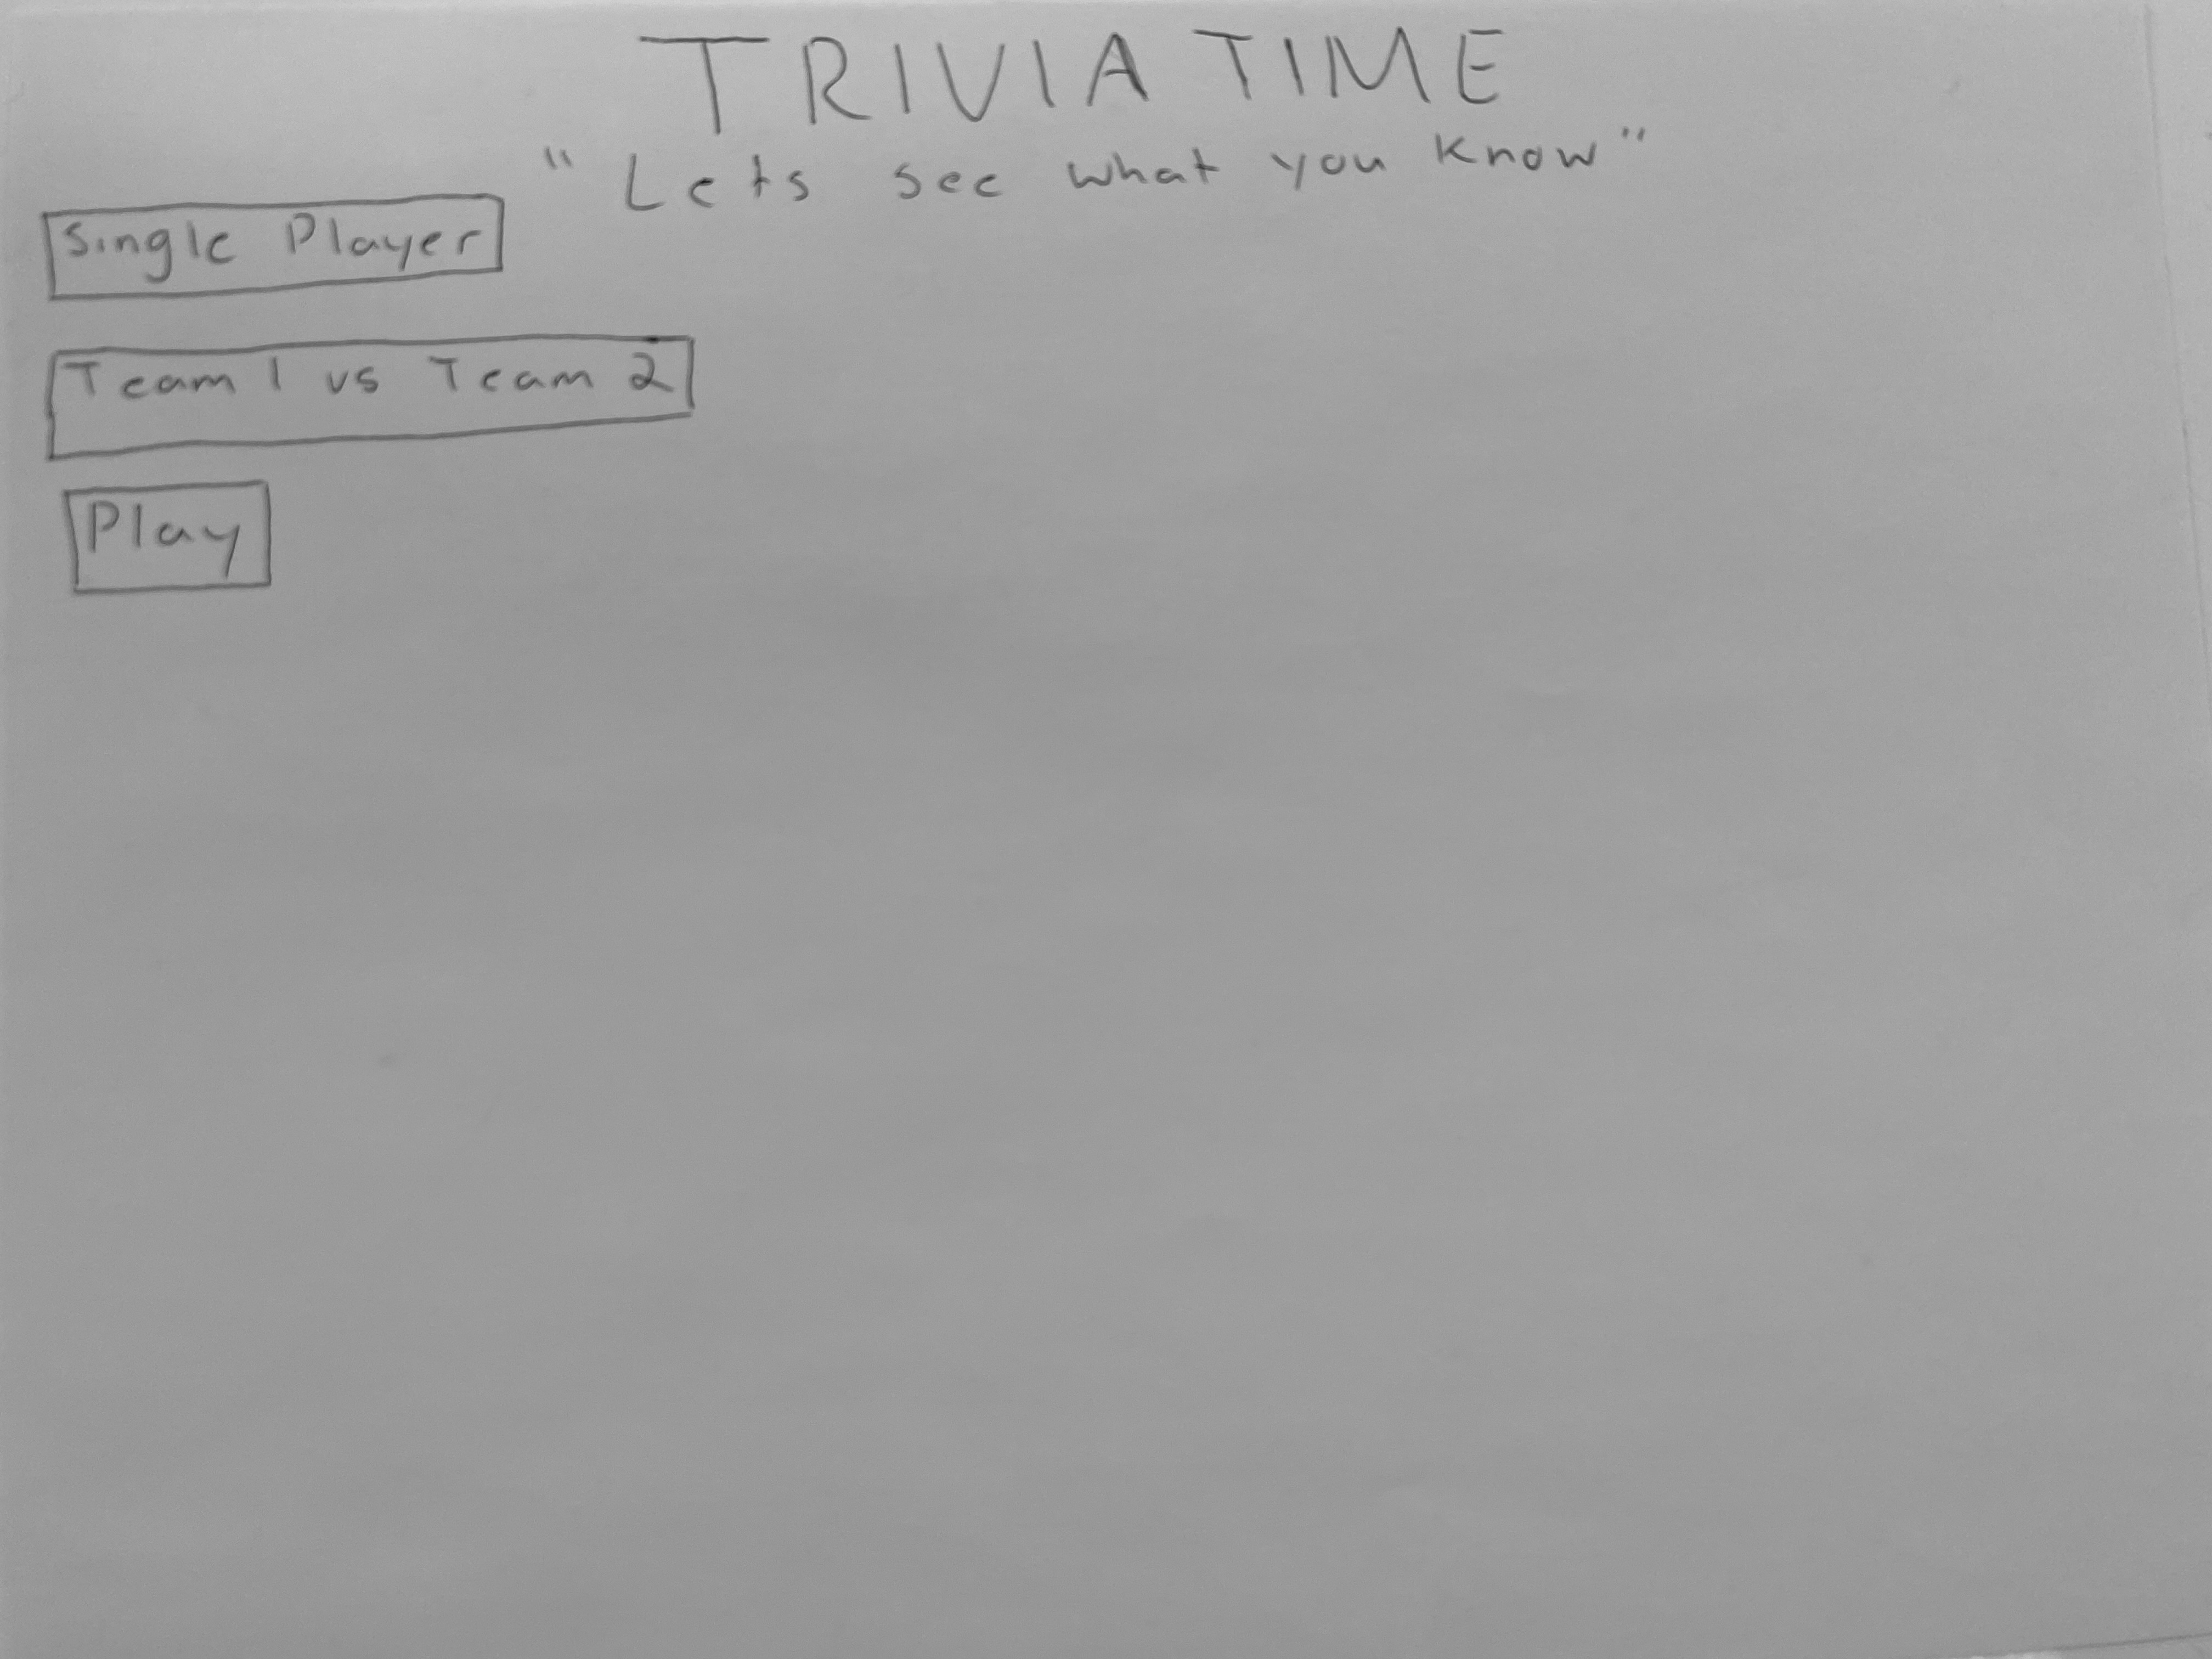 TRIVIA TIME
"Lets see what you know"
Single Player
Team 1 vs Team 2
Play